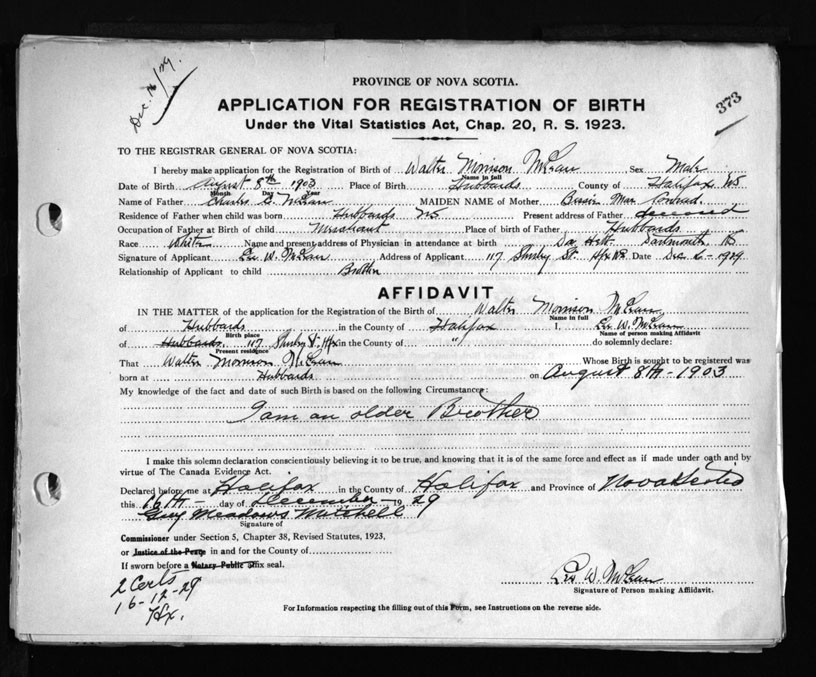 Dec. 16/29.
PROVINCE OF NOVA SCOTIA.
373
APPLICATION FOR REGISTRATION OF BIRTH
Under the Vital Statistics Act, Chap. 20, R. S. 1923.
TO THE REGISTRAR GENERAL OF NOVA SCOTIA:
I hereby make application for the Registration of Birth of Walter Morrison McLean Sex Male
Name in full
Date of Birth August 8th 1903 Place of Birth Hubbards County of Halifax NS
Month Day Year
Name of Father Charles C. McLean MAIDEN NAME of Mother Conrad.
Residence of Father when child was born Hubbards NS Present address of Father deceased
Occupation of Father at Birth of child Merchant Place of birth of Father Hubbards
Race White Name and present address of Physician in attendance at birth Dartmouth NS
Signature of Applicant W. McLean Address of Applicant 117 Shirley St. Hfx NS Date Dec 1929
Relationship of Applicant to child Brother
AFFIDAVIT
IN THE MATTER of the application for the Registration of the Birth of Walter Morrison McLean
Name in full
of Hubbards in the County of Halifax I, W. McLean
Birth place Name of person making Affidavit
of Hubbards 117 Shirley St. Hfx in the County of " do solemnly declare:
Present residence
That Walter Morrison McLean Whose Birth is sought to be registered was
born at Hubbards on August 8th - 1903
My knowledge of the fact and date of such Birth is based on the following Circumstances:
I am an older Brother
I make this solemn declaration conscientiously believing it to be true, and knowing that it is of the same force and effect as if made under oath and by
virtue of The Canada Evidence Act.
Declared before me at Halifax in the County of Halifax and Province of Nova Scotia
this 16th day of December 1929
Guy Meadows Mitchell
Signature of
Commissioner under Section 5, Chapter 38, Revised Statutes, 1923,
or Justice of the Peace in and for the County of
If sworn before a Notary Public affix seal.
2 Certs
16-12-29
Hfx.
W. McLean
Signature of Person making Affidavit.
For Information respecting the filling out of this Form, see Instructions on the reverse side.